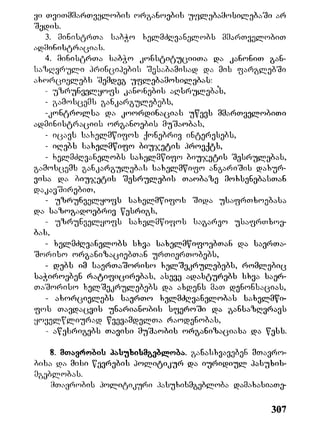 ვი თვითმმართველობის ორგანოების უფლებამოსილებაში არ
შედის.
3. მინისტრთა საბჭო ხელმძღვანელობს მმართველობით
ადმინისტრაციას.
4. მინისტრთა საბჭო კონსტიტუციითა და კანონით გან-
საზღვრული პრინციპების შესაბამისად და მის ფარგლებში
ახორციელებს შემდეგ უფლებამოსილებას:
- უზრუნველყოფს კანონების აღსრულებას,
- გამოსცემს განკარგულებებს,
-კონტროლსა და კოორდინაციას უწევს მმართველობითი
ადმინისტრაციის ორგანოების მუშაობას,
- იცავს სახელმწიფოს ქონებრივ ინტერესებს,
- იღებს სახელმწიფო ბიუჯეტის პროექტს,
- ხელმძღვანელობს სახელმწიფო ბიუჯეტის შესრულებას,
გამოსცემს განკარგულებას სახელმწიფო ანგარიშის დახურ-
ვისა და ბიუჯეტის შესრულების თაობაზე მოხსენებასთან
დაკავშირებით,
- უზრუნველყოფს სახელმწიფოს შიდა უსაფრთხოებასა
და საზოგადოებრივ წესრიგს,
- უზრუნველყოფს სახელმწიფოს საგარეო უსაფრთხოე-
ბას,
- ხელმძღვანელობს სხვა სახელმწიფოებთან და საერთა-
შორისო ორგანიზაციებთან ურთიერთობებს,
- დებს იმ საერთაშორისო ხელშეკრულებებს, რომლებიც
საჭიროებენ რატიფიცირებას, ასევე ადასტურებს სხვა საერ-
თაშორისო ხელშეკრულებებს და ახდენს მათ დენონსაციას,
- ახორციელებს საერთო ხელმძღვანელობას სახელმწი-
ფოს თავდაცვის უნარიანობის სფეროში და განსაზღვრავს
ყოველწლიურად წვევამდელთა რაოდენობას,
- აწესრიგებს თავისი მუშაობის ორგანიზაციასა და წესს.
8. მთავრობის პასუხისმგებლობა. განასხვავებენ მთავრო-
ბისა და მისი წევრების პოლიტიკურ და იურიდიულ პასუხის-
მგებლობას.
მთავრობის პოლიტიკური პასუხისმგებლობა დამახასიათე-
307